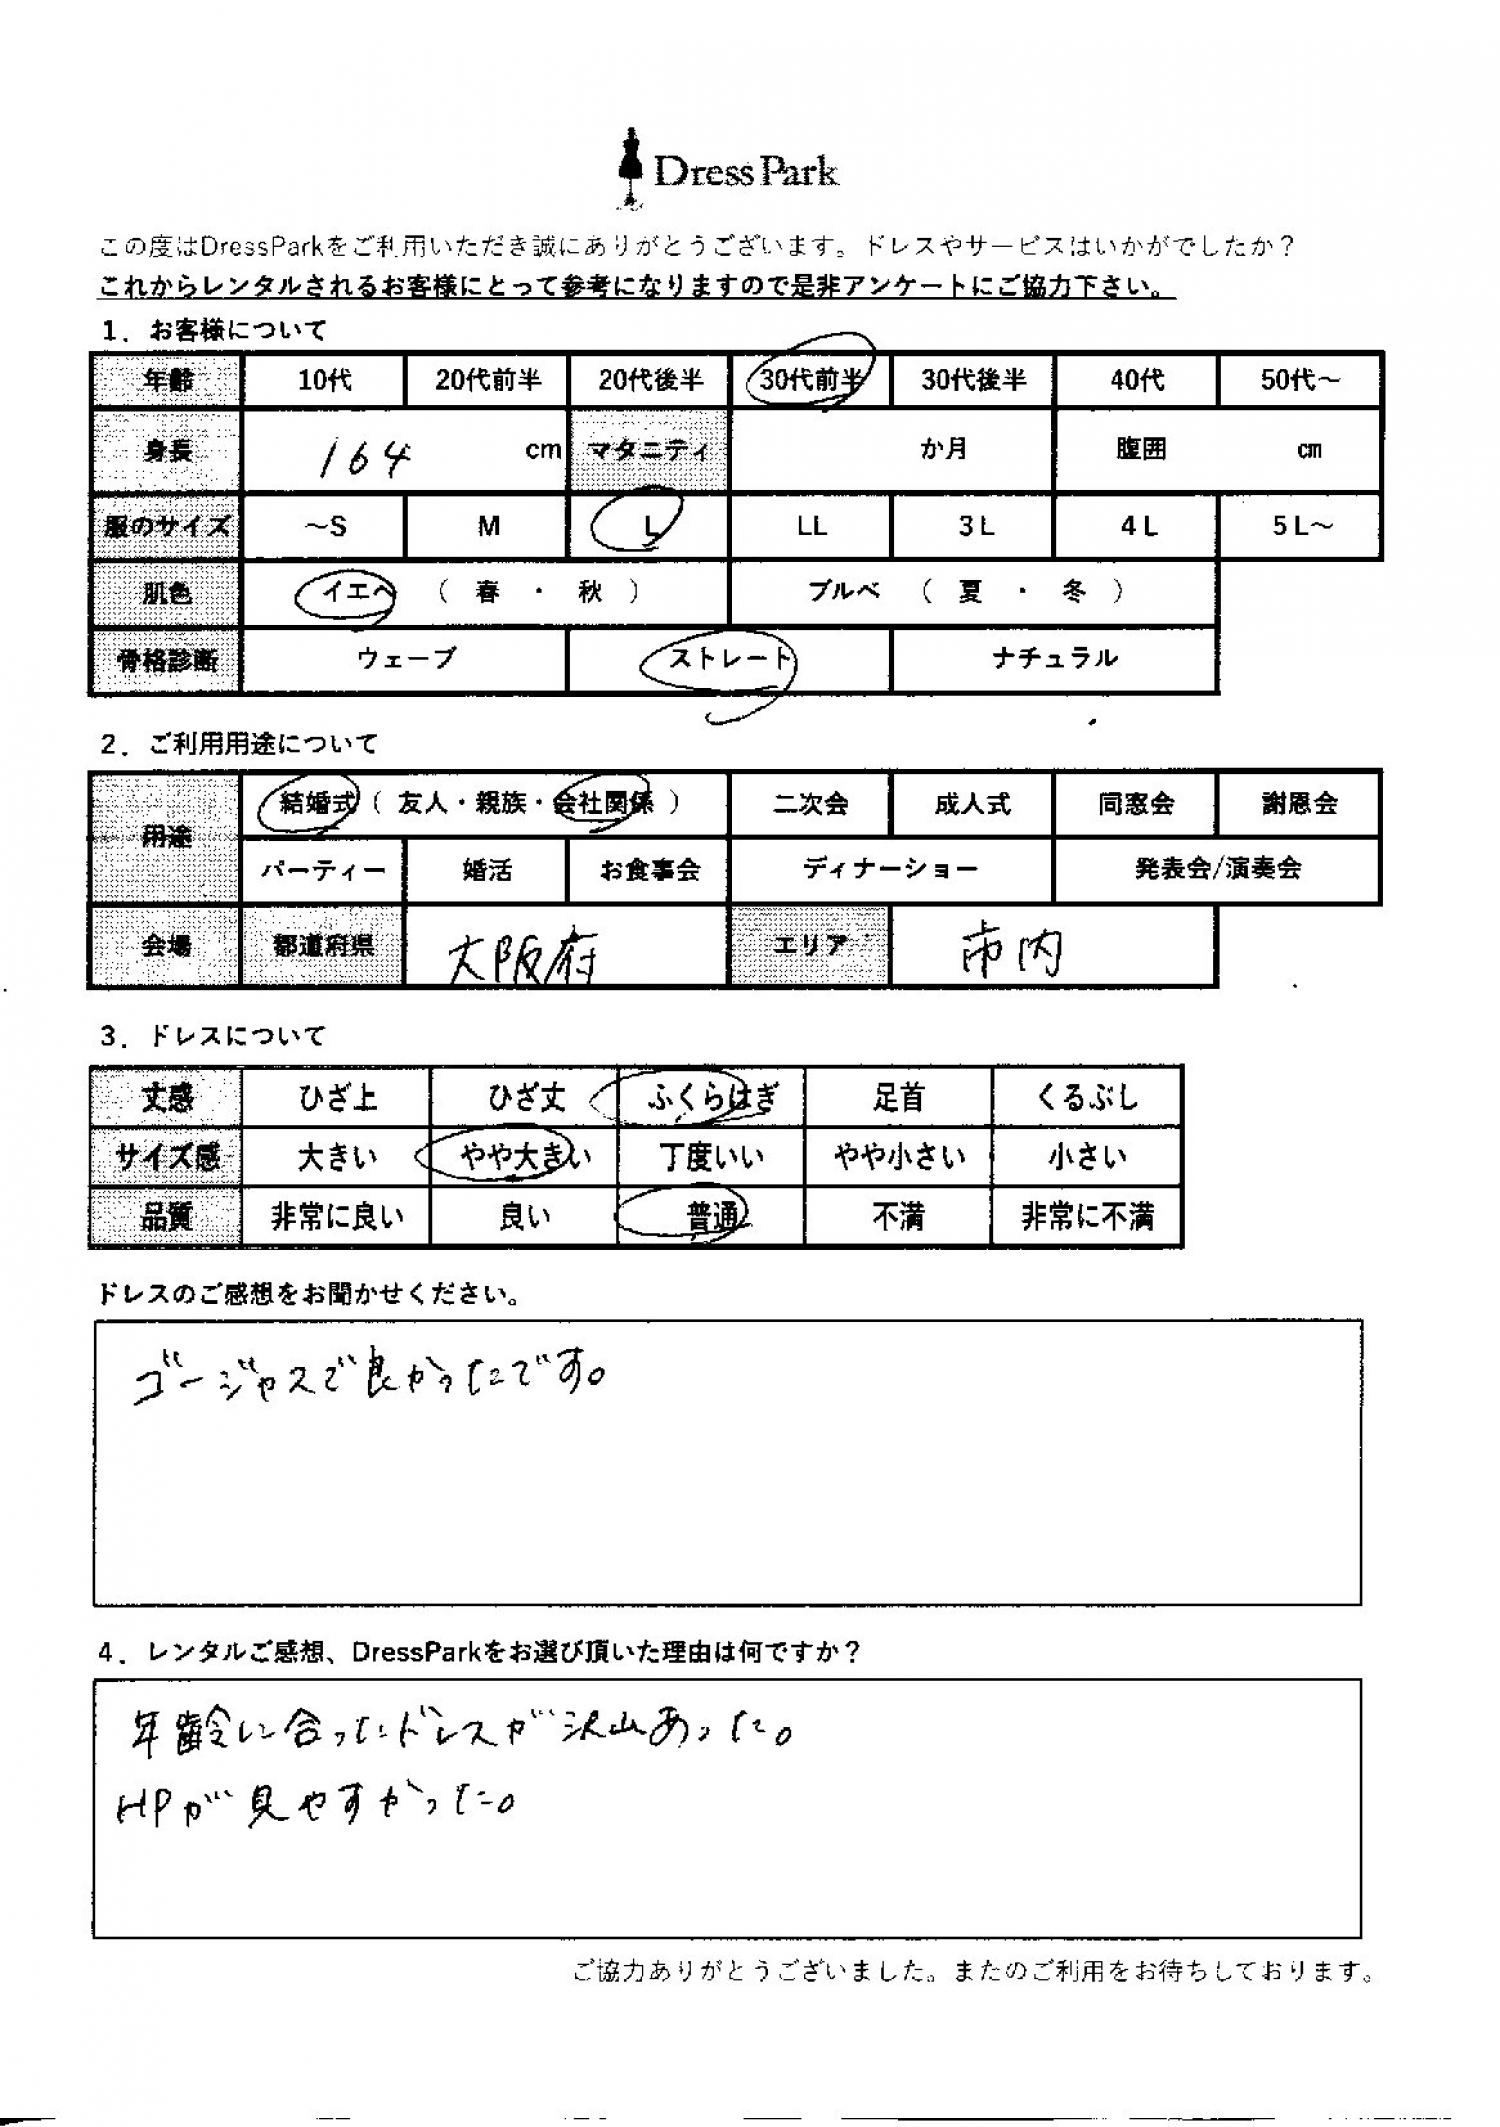 Dress Park
この度はDressParkをご利用いただき誠にありがとうございます。ドレスやサービスはいかがでしたか?
これからレンタルされるお客様にとって参考になりますので是非アンケートにご協力下さい。
1. お客様について
年齢 10代 20代前半 20代後半 30代前半 30代後半 40代 50代~
身長 164 cm マタニティ か月 腹囲 cm
服のサイズ ~S M L LL 3L 4L 5L~
肌色 イエベ ( 春 ・ 秋 ) ブルベ ( 夏 ・ 冬 )
骨格診断 ウェーブ ストレート ナチュラル
2. ご利用用途について
用途 結婚式 ( 友人・親族・会社関係 ) 二次会 成人式 同窓会 謝恩会
パーティー 婚活 お食事会 ディナーショー 発表会/演奏会
会場 都道府県 大阪府 エリア 市内
3. ドレスについて
丈感 ひざ上 ひざ丈 ふくらはぎ 足首 くるぶし
サイズ感 大きい やや大きい 丁度いい やや小さい 小さい
品質 非常に良い 良い 普通 不満 非常に不満
ドレスのご感想をお聞かせください。
ゴージャスで良かったです。
4. レンタルご感想、DressParkをお選び頂いた理由は何ですか?
年齢に合ったドレスが沢山あった。
HPが見やすかった。
ご協力ありがとうございました。またのご利用をお待ちしております。